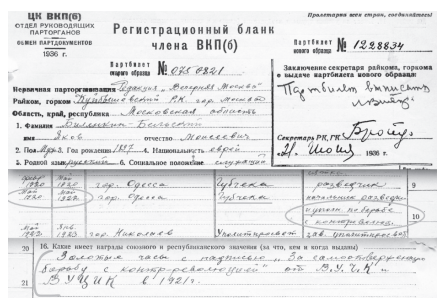 Пролетарии всех стран, соединяйтесь!
ЦК ВКП(б)
ОТДЕЛ РУКОВОДЯЩИХ
ПАРТОРГАНОВ
ОБМЕН ПАРТДОКУМЕНТОВ
1936 г.
Регистрационный бланк
члена ВКП(б)
Партбилет
нового образца № 1228834
Партбилет
старого образца № 0750821
Первичная парторганизация Редакция „Вечерняя Москва"
Райком, горком Куйбышевский Р.К. гор. Москвы
Область, край, республика Московская область
1. Фамилия Бельский
Имя Яков Отчество Моисеевич
2. Пол 3. Год рождения 1897 4. Национальность еврей
5. Родной язык русский 6. Социальное положение служащий
Заключение секретаря райкома, горкома
о выдаче партбилета нового образца:
Партбилет выписать
Секретарь РК, ГК
21 1936 г.
1920 1920 гор. Одесса Губчека разведчик 9
Май Май
1920 1922 гор. Одесса Губчека начальник разведки
по борьбе
с контрреволюц. 10
Май
1922 1923 гор. Николаев Политпросвет зав. политпросвет
20 16. Какие имеет награды союзного и республиканского значения (за что, кем и когда выданы)
Золотые часы с надписью „За самоотверженную
21 борьбу с контр-революцией" от В.У.Ч.К и
ВУЦИК в 1921 г.